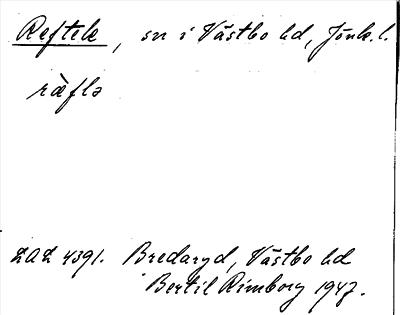 Reftele, sn i Västbo hd, Jönk. l.
ràflə
LAL 4391. Bredaryd, Västbo hd
Bertil Rimborg 1947.